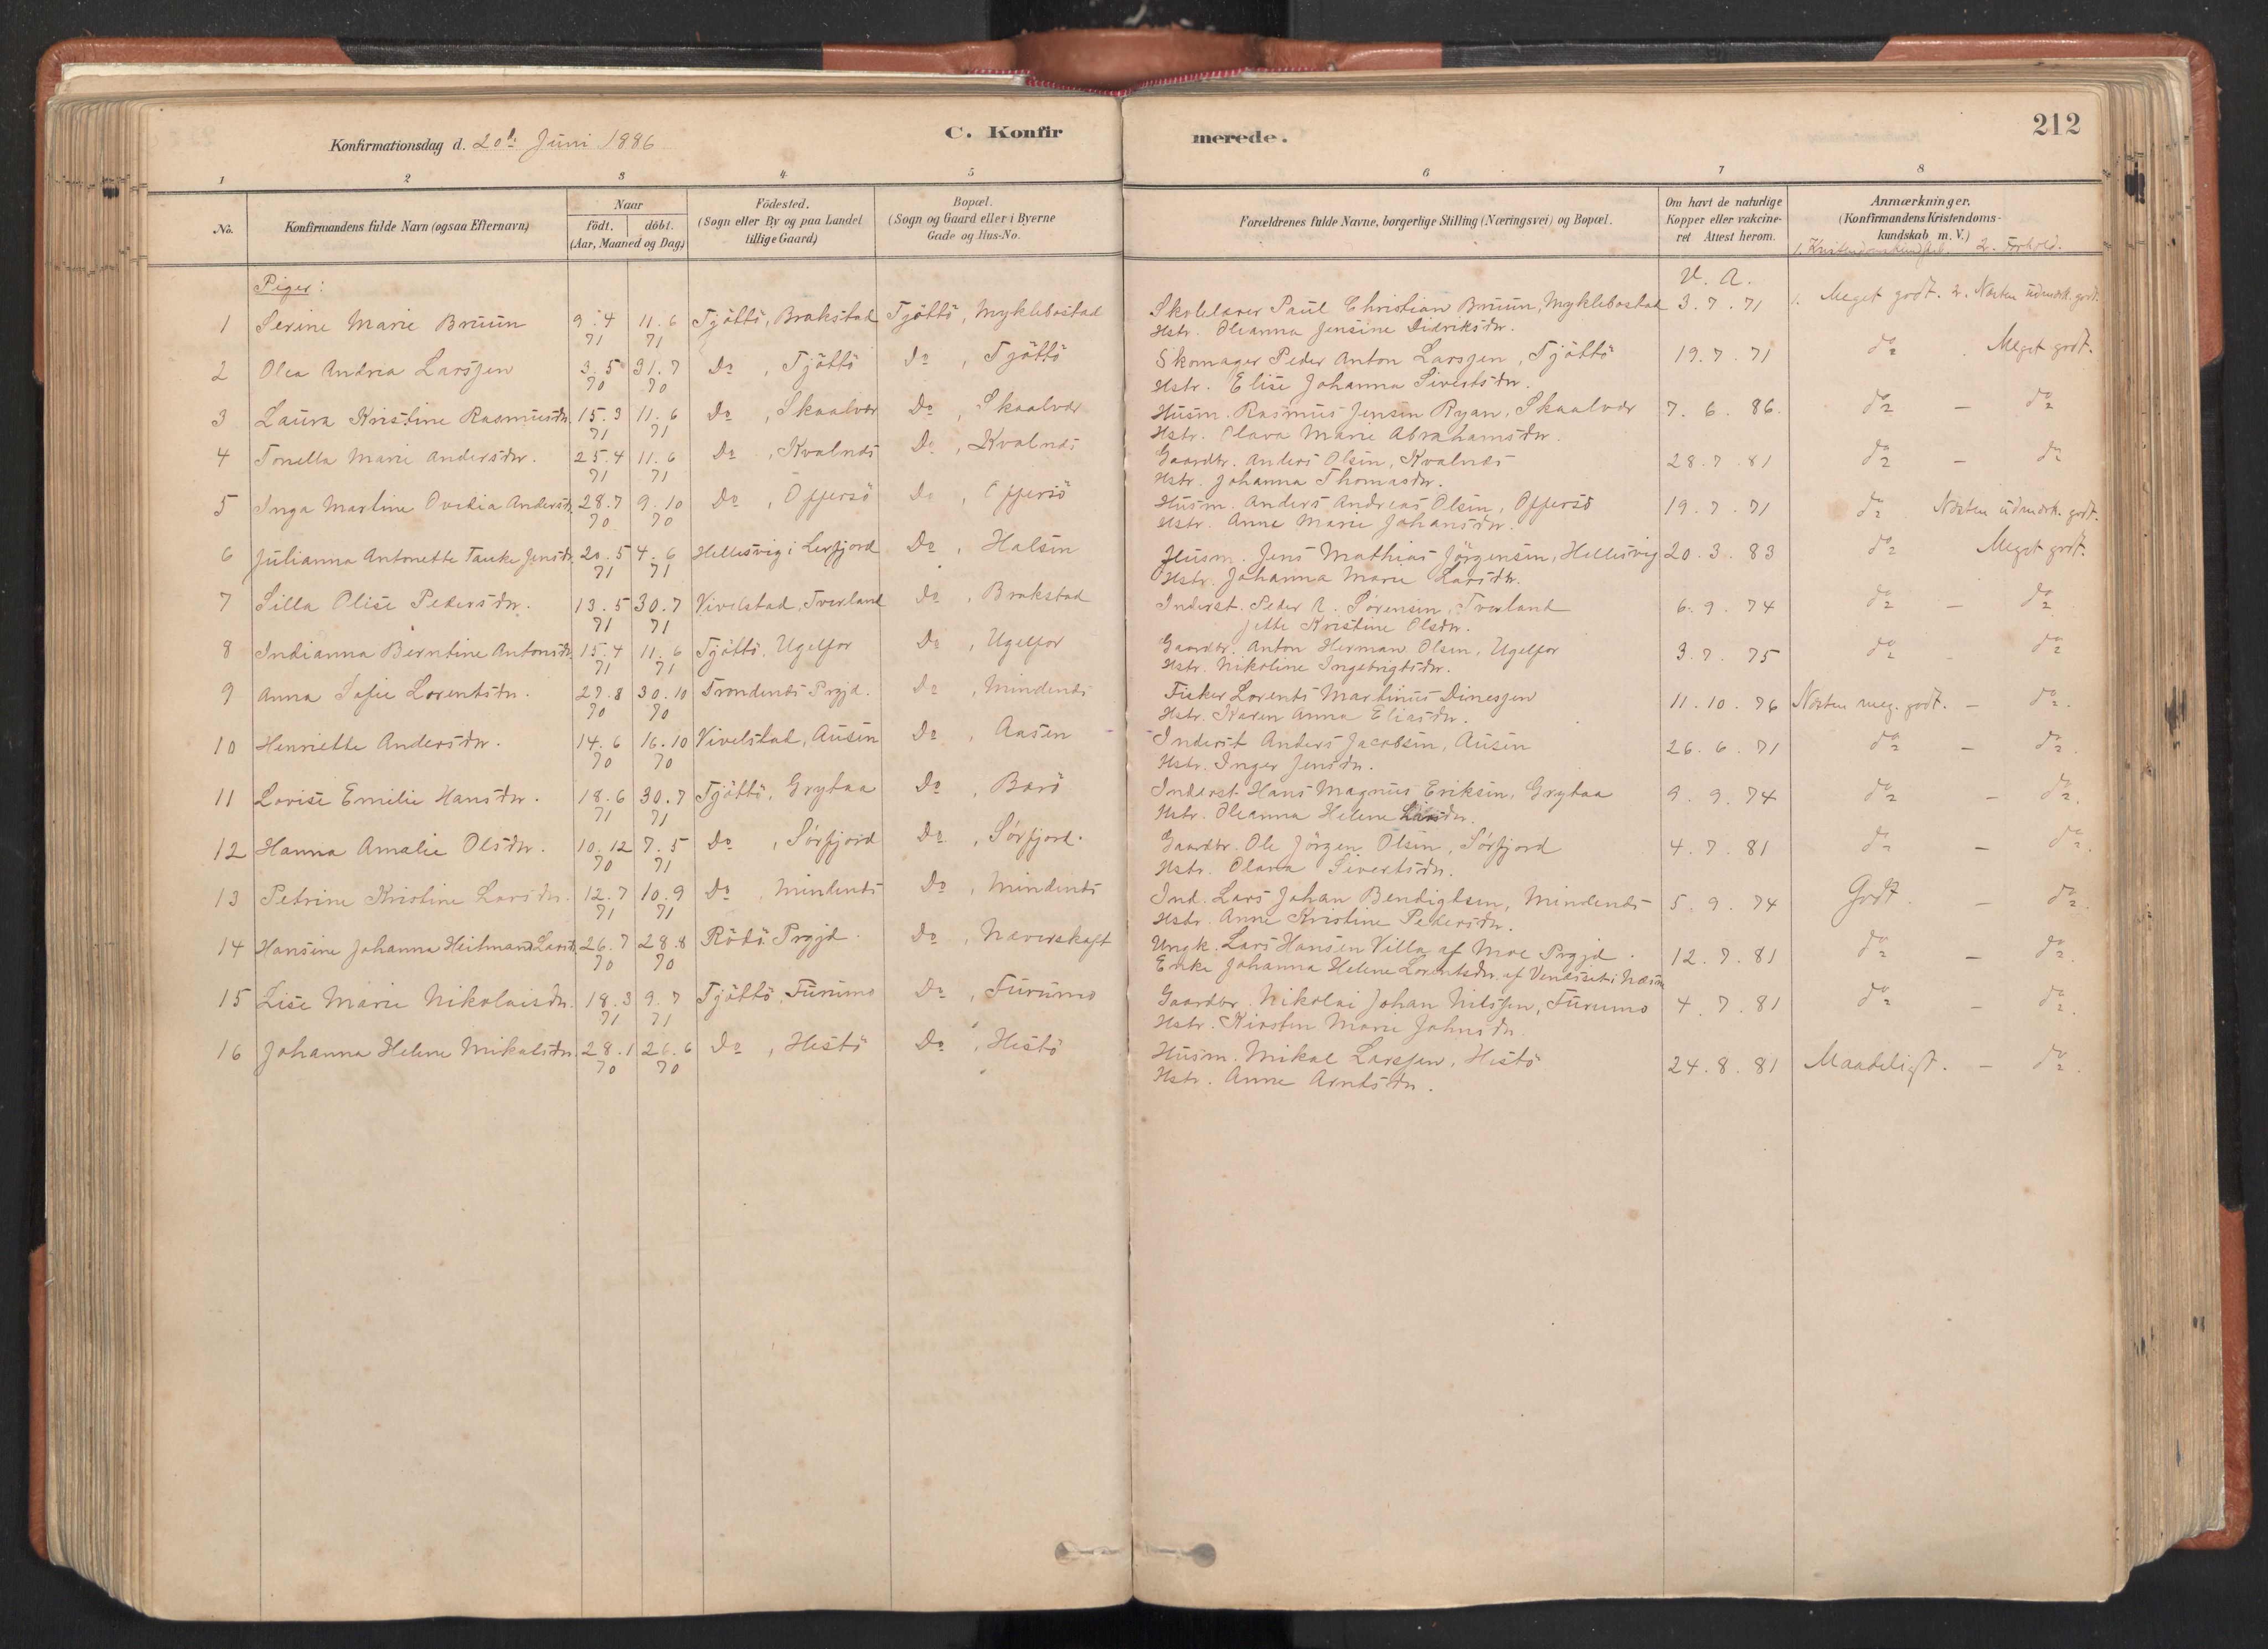 Konfirmationsdag d. 20de Juni 1886
C. Konfirmerede.
212
1 2 3 4 5 6 7 8
No.
Konfirmandens fulde Navn (ogsaa Efternavn)
Naar
födt. döbt.
(Aar, Maaned og Dag)
Födested.
(Sogn eller By og paa Landet
tillige Gaard)
Bopæl.
(Sogn og Gaard eller i Byerne
Gade og Hus-No.
Forældrenes fulde Navne, borgerlige Stilling (Næringsvei) og Bopæl.
Om havt de naturlige
Kopper eller vakcine-
ret Attest herom.
Anmærkninger.
(Konfirmandens Kristendoms-
kundskab m. V.)
1. Kristendomskundskab. 2. Forhold.
Piger:
V. A.
1 Serine Marie Bruun 9.4 71 11.6 71 Tjöttö, Brakstad Tjöttö, Myklebostad Skolelærer Paul Christian Bruun, Myklebostad 3.7.71 1. Meget godt. 2. Næsten udmærk. godt.
Hstr. Oleanna Jensine Didriksdtr.
2 Olea Andrea Larsen 3.5 70 31.7 70 Do, Tjöttö Do, Tjöttö Skomager Peder Anton Larsen, Tjöttö 19.7.71 do Meget godt.
Hstr. Elise Johanna Sivertsdtr.
3 Laura Kristine Rasmusdtr. 15.3 71 11.6 71 Do, Skaalvær Do, Skaalvær Husm. Rasmus Jensen Ryan, Skaalvær 7.6.86. do - do
Hstr. Olava Marie Abrahamsdtr.
4 Tonella Marie Andersdtr. 25.4 71 11.6 71 Do, Kvalnæs Do, Kvalnæs Gaardbr. Anders Olsen, Kvalnæs 28.7.81 do - do
Hstr. Johanna Thomasdtr.
5 Inga Martine Ovedia Andersdtr. 28.7 70 9.10 70 Do, Offersö Do, Offersö Husm. Anders Andreas Olsen, Offersö 19.7.71 do Næsten udmærk. godt.
Hstr. Anne Marie Johansdtr.
6 Julianna Antonette Tauke Jensdtr. 20.5 71 4.6 71 Hellesvig i Lerfjord Do, Halsen Husm. Jens Mathias Jörgensen, Hellesvig 20.3.83 do Meget godt.
Hstr. Johanna Marie Larsdtr.
7 Silla Olise Pedersdtr. 13.5 71 30.7 71 Vivelstad, Tverland Do, Brakstad Inderst. Peder A. Sörensen, Tverland 6.9.74 do - do
Jette Kristine Olsdtr.
8 Indianna Berntine Antonsdtr. 15.4 71 11.6 71 Tjöttö, Ugelfor Do, Ugelfor Gaardbr. Anton Herman Olsen, Ugelfor 3.7.75 do - do
Hstr. Nikoline Ingebrigtsdtr.
9 Anna Sofie Lorentsdtr. 27.8 70 30.10 70 Trondenes Prgjd. Do, Mindenes Fisker Lorents Martinus Dinessen 11.10.76 Næsten meg. godt. - do.
Hstr. Karen Anna Eliasdtr.
10 Henriette Andersdtr. 14.6 70 16.10 70 Vivelstad, Ausen Do, Aasen Inderst Anders Jacobsen, Ausen 26.6.71 do - do.
Hstr. Inger Jensdtr.
11 Lovise Emilie Hansdtr. 18.6 71 30.7 71 Tjöttö, Grytaa Do, Barö Inderst. Hans Magnus Eriksen, Grytaa 9.9.74 do - do.
Hstr. Oleanna Helene Larsdtr.
12 Hanna Amalie Olsdtr. 10.12 70 7.5 71 Do, Sörfjord Do, Sörfjord. Gaardbr. Ole Jörgen Olsen, Sörfjord 4.7.81 do - do.
Hstr. Olava Sivertsdtr.
13 Petrine Kristine Larsdtr. 12.7 71 10.9 71 Do, Mindenes Do, Mindenes Ind. Lars Johan Bendigtsen, Mindenes 5.9.74 Godt. - do.
Hstr. Anne Kristine Pedersdtr.
14 Hansine Johanna Heitmand Larsdtr. 26.7 70 28.8 70 Rödö Prgjd. Do, Næverskaft Ungk. Lars Hansen Villa af Moe Prgjd. 12.7.81 do - do.
Enke Johanna Helene Lorentsdtr. af Venæset i Næsne
15 Lise Marie Nikolaisdtr. 18.3 71 9.7 71 Tjöttö, Furumo Do, Furumo Gaardbr. Nikolai Johan Nilssen, Furumo 4.7.81 do - do.
Hstr. Kirsten Marie Johnsdtr.
16 Johanna Helene Mikalsdtr. 28.1 70 26.6 70 Do, Hestö Do, Hestö Husm. Mikal Larssen, Hestö 24.8.81 Maadeligt. - do.
Hstr. Anne Arntsdtr.